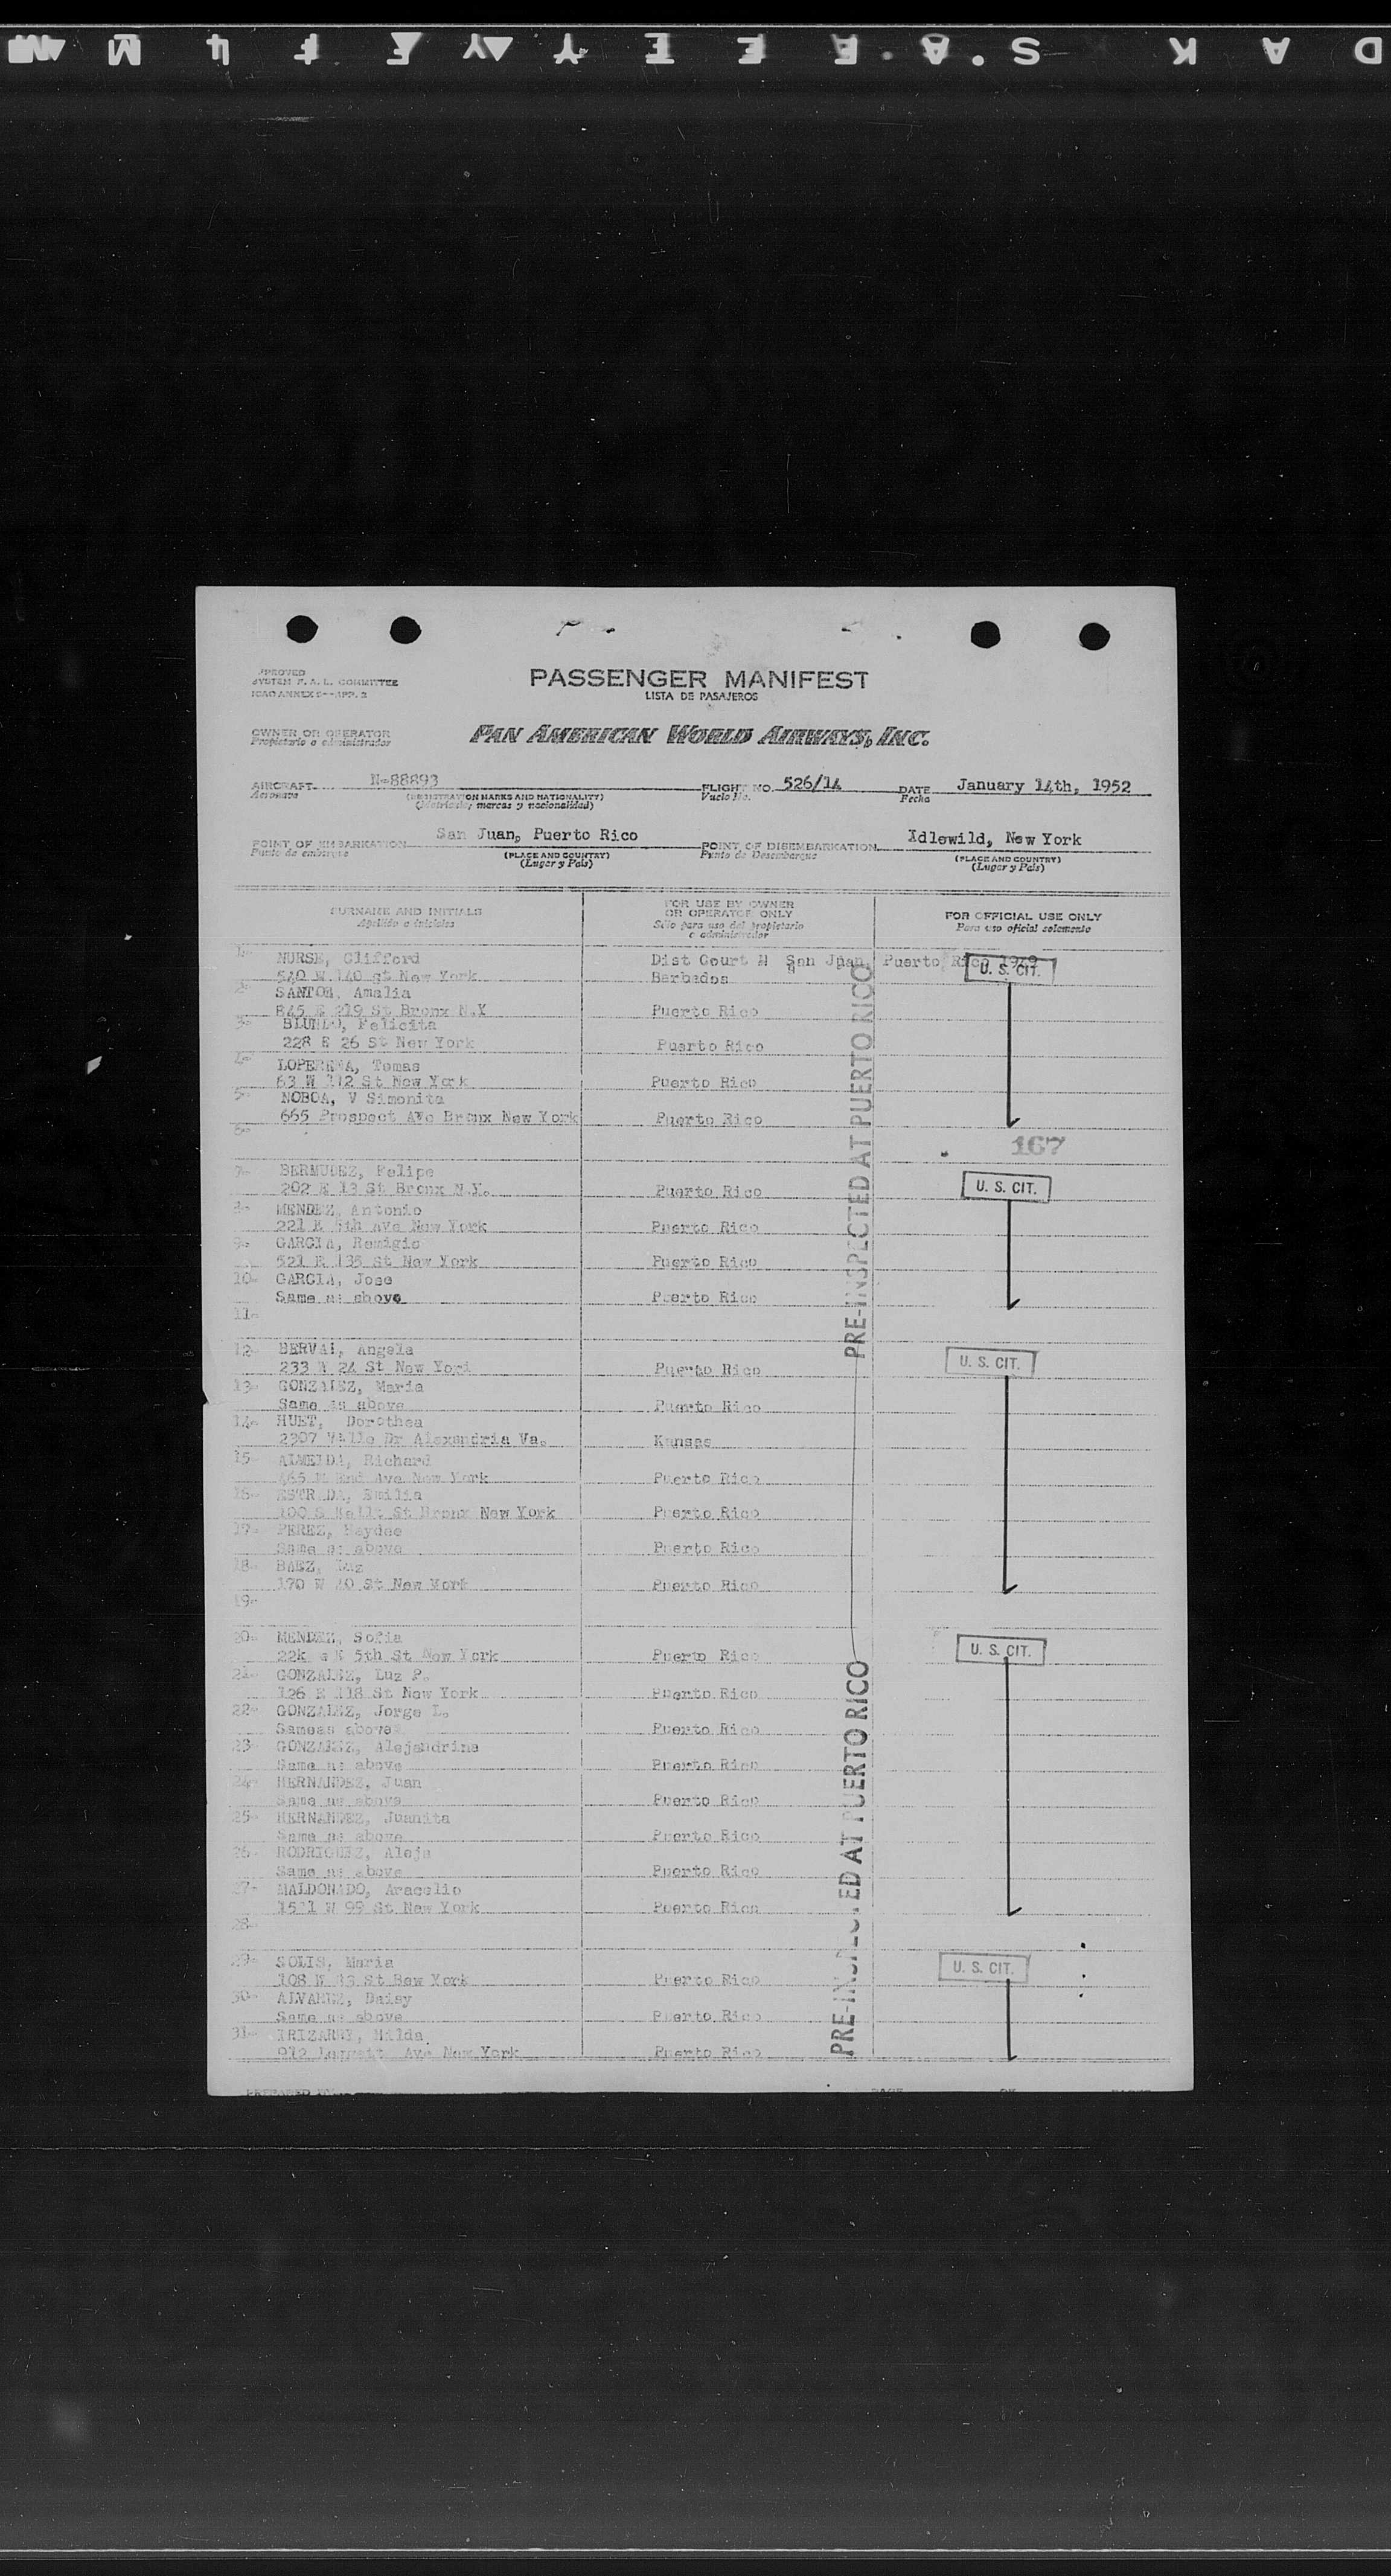 APPROVED
SYSTEM F. A. L. COMMITTEE
ICAO ANNEX 9--APP. 2
PASSENGER MANIFEST
LISTA DE PASAJEROS
OWNER OR OPERATOR
Propietario o administrador
PAN AMERICAN WORLD AIRWAYS, INC.
AIRCRAFT N-88893 FLIGHT NO. 526/14 DATE January 14th, 1952
Aeronave (REGISTRATION MARKS AND NATIONALITY) Vuelo No. Fecha
(Matricula, marcas y nacionalidad)
POINT OF EMBARKATION San Juan, Puerto Rico POINT OF DISEMBARKATION Idlewild, New York
Punto de embarque (PLACE AND COUNTRY) Punto de Desembarque (PLACE AND COUNTRY)
(Lugar y País) (Lugar y País)
SURNAME AND INITIALS FOR USE BY OWNER OR OPERATOR ONLY FOR OFFICIAL USE ONLY
Apellido e iniciales Sólo para uso del propietario o administrador Para uso oficial solamente
1- NURSE, Clifford Dist Court N San Juan, Puerto Rico 1949
540 W 140 st New York Barbados U. S. CIT.
2- SANTOS, Amalia
845 E 219 St Bronx N.Y Puerto Rico
3- Felicita
228 E 26 St New York Puerto Rico
4- LOPERENA, Tomas
63 W 112 St New York Puerto Rico
5- NOBOA, V Simonita
665 Prospect Ave Bronx New York Puerto Rico
6-
167
7- BERMUDEZ, Felipe
202 E 13 St Bronx N.Y. Puerto Rico U. S. CIT.
8- MENDEZ, Antonio
221 E 5th Ave New York Puerto Rico
9- GARCIA, Remigio
521 E 135 St New York Puerto Rico
10- GARCIA, Jose
Same as above Puerto Rico
11-
12- Angela
233 E 24 St New York Puerto Rico U. S. CIT.
13- GONZALEZ, Maria
Same as above Puerto Rico
14- HUET, Dorothea
2307 Dr Alexandria Va. Kansas
15- ALMEIDA, Richard
465 W End Ave New York Puerto Rico
16- ESTRADA, Emilia
St Bronx New York Puerto Rico
17- PEREZ, Haydee
Same as above Puerto Rico
18- BAEZ, Luz
170 W St New York Puerto Rico
19-
20- MENDEZ, Sofia
E 5th St New York Puerto Rico U. S. CIT.
21- GONZALEZ, Luz P.
126 E 118 St New York Puerto Rico
22- GONZALEZ, Jorge L.
Sameas above Puerto Rico
23- GONZALEZ, Alejandrina
Same as above Puerto Rico
24- HERNANDEZ, Juan
Same as above Puerto Rico
25- HERNANDEZ, Juanita
Same as above Puerto Rico
26- RODRIGUEZ, Aleja
Same as above Puerto Rico
27- MALDONADO, Aracelio
W 99 St New York Puerto Rico
28-
29- SOLIS, Maria
108 St New York Puerto Rico U. S. CIT.
30- ALVAREZ, Daisy
Same as above Puerto Rico
31- IRIZARRY, Hilda
Ave New York Puerto Rico
PRE-INSPECTED AT PUERTO RICO
PRE-INSPECTED AT PUERTO RICO